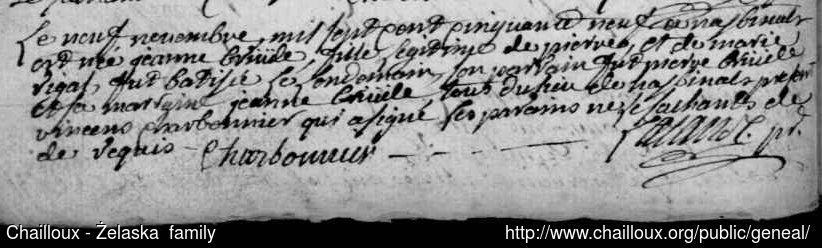 Le neuf novembre, mil sept cent cinquante neuf de nasbinals
est née jeanne brüele, fille légitime de pierre, et de marie
rigal, fut batisée le lendemain, son parrain fut pierre brüele
et sa marraine jeanne brüele tous du lieu de nasbinals présent
vincens charbonnier qui a signé les parains ne le sachants de
de requis - Charbonnier
pr.
Chailloux - Żelaska family
http://www.chailloux.org/public/geneal/